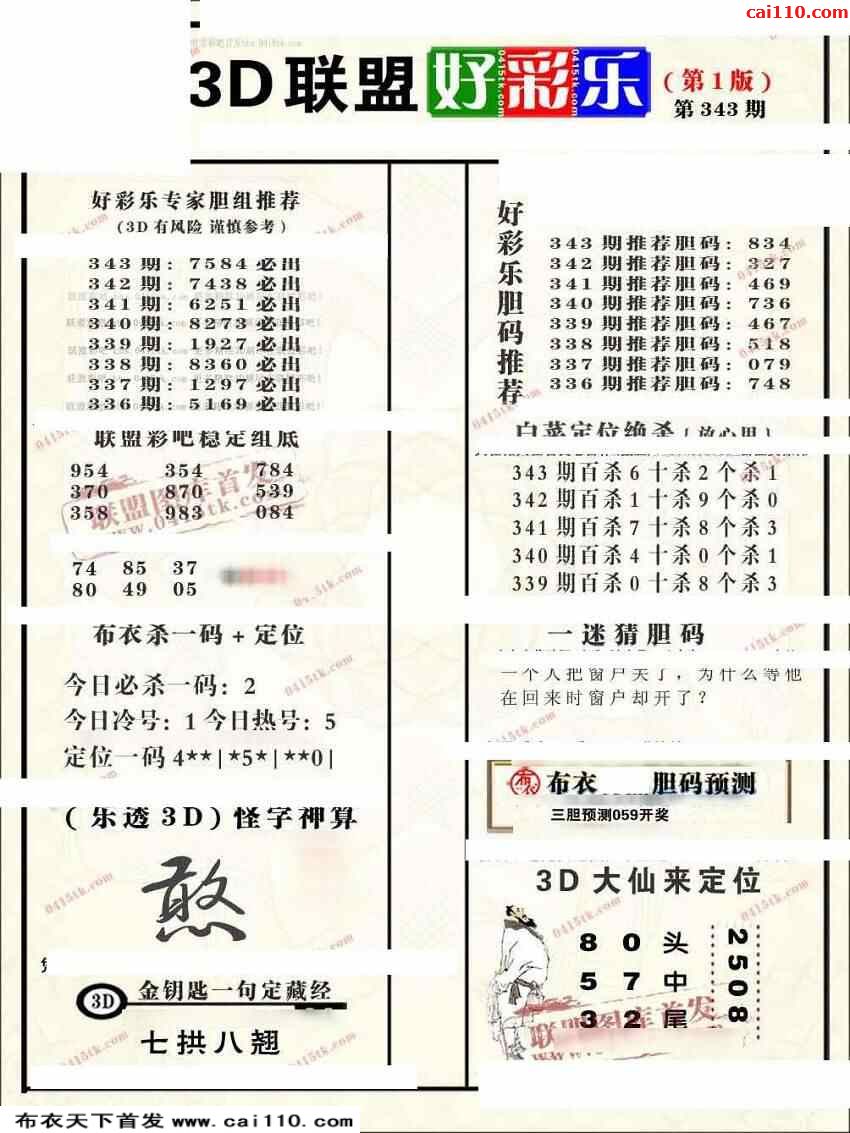 cai110.com
3D联盟好彩乐
(第1版)
第343期
好彩乐专家胆组推荐
(3D有风险 谨慎参考)
343期: 7584必出
342期: 7438必出
341期: 6251必出
340期: 8273必出
339期: 1927必出
338期: 8360必出
337期: 1297必出
336期: 5169必出
联盟彩吧稳定组底
954 354 784
370 870 539
358 983 084
74 85 37
80 49 05
布衣杀一码+定位
今日必杀一码: 2
今日冷号: 1 今日热号: 5
定位一码4**|*5*|**0|
(乐透3D)怪字神算
憨
3D 金钥匙一句定藏经
七拱八翘
好彩乐胆码推荐
343期推荐胆码: 834
342期推荐胆码: 327
341期推荐胆码: 469
340期推荐胆码: 736
339期推荐胆码: 467
338期推荐胆码: 518
337期推荐胆码: 079
336期推荐胆码: 748
白菜定位绝杀(放心用)
343期百杀6十杀2个杀1
342期百杀1十杀9个杀0
341期百杀7十杀8个杀3
340期百杀4十杀0个杀1
339期百杀0十杀8个杀3
一迷猜胆码
一个人把窗户关了，为什么等他
在回来时窗户却开了？
布衣 胆码预测
三胆预测059开奖
3D大仙来定位
8 0 头
5 7 中
3 2 尾
2508
联盟图库首发
www.0415tk.com
布衣天下首发 www.cai110.com